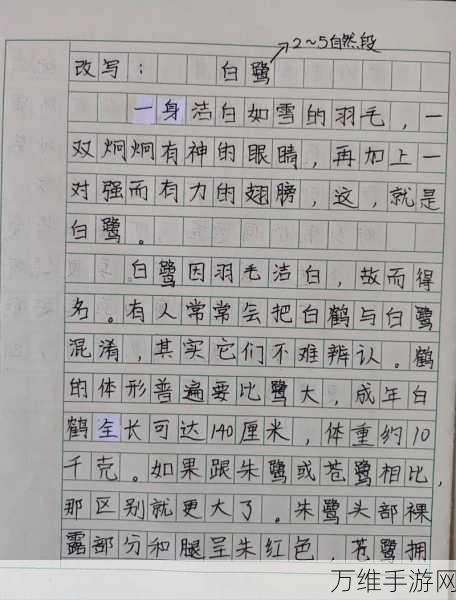 2~5自然段
改写：白鹭
一身洁白如雪的羽毛，一
双炯炯有神的眼睛，再加上一
对强而有力的翅膀，这，就是
白鹭。
白鹭因羽毛洁白，故而得
名。有人常常会把白鹤与白鹭
混淆，其实它们不难辨认。鹤
的体形普遍要比鹭大，成年白
鹤全长可达140厘米，体重约10
千克。如果跟朱鹭或苍鹭相比，
那区别就更大了。朱鹭头部裸
露部分和腿呈朱红色，苍鹭拥
万维手游网